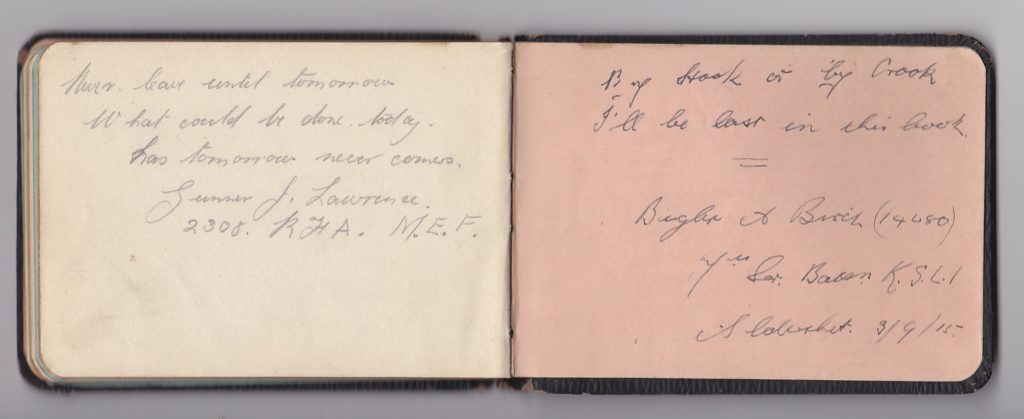 Never leave until tomorrow
What could be done today.
has tomorrow never comes.
Gunner J. Lawrence.
2308. RHA. M.E.F.
By Hook or by Crook
I'll be last in this book.
Bugler A Birch (14480)
7th Ser. Battn. K.S.L.I
Aldershot. 3/9/15